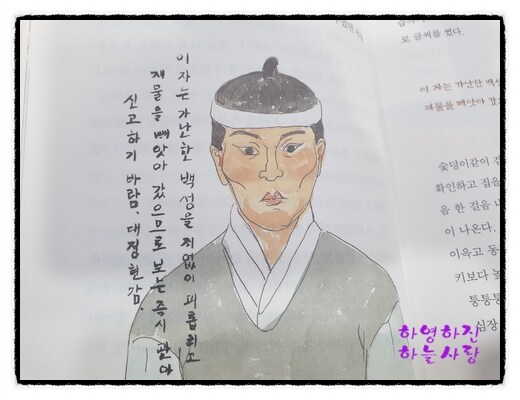 이 자는 가난한 백성을 죄없이 괴롭히고
재물을 빼앗아 갔으므로 보는 즉시 관아
신고하기 바람. 대정현감.
로 글씨를 썼다.
이 자는 가난한
재물을 빼앗아
숯덩이같이
확인하고 집을
음 한 걸음
이 나온다.
이윽고
키보다
심장
하영하진
하늘사랑